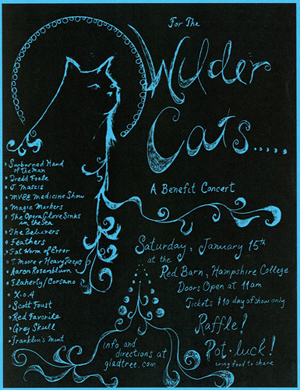 For The
Wilder
Cats.....
A Benefit Concert
• Sunburned Hand
of the Man
• Dredd Foole
• J. Mascis
• MV&EE Medicine Show
• Magic Markers
• The Opera Glove Sinks
in the Sea
• The Believers
• Feathers
• Fat Worm of Error
• T. Moore + Heavy Jreeps
• Aaron Rosenblum
• Flaherty/Corsano
• X.O.4
• Scott Foust
• Red Favorite
• Grey Skull
• Franklin's Mint
Saturday, January 15th
at the
Red Barn, Hampshire College
Doors Open at 11am
Tickets $10 day of show only
Raffle!
Pot-luck!
bring food to share
info and
directions at
gladtree.com